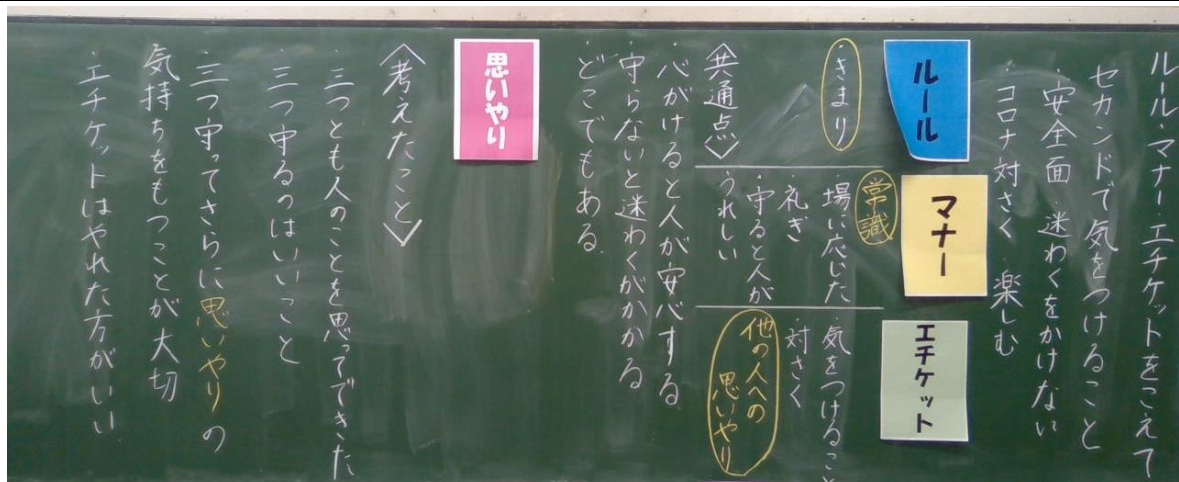 ルール・マナー・エチケットをこえて
セカンドで気をつけること
・安全面 ・迷わくをかけない
・コロナ対さく ・楽しむ
ルール
・きまり
マナー
常識
・場に応じた
・礼ぎ
・守ると人が
うれしい
エチケット
・気をつけること
・対さく
他の人への
思いやり
〈共通点〉
・心がけると人が安心する
・守らないと迷わくがかかる
・どこでもある
思いやり
〈考えたこと〉
・三つとも人のことを思ってできた
・三つ守るのはいいこと
・三つ守ってさらに思いやりの
気持ちをもつことが大切
・エチケットはやれた方がいい